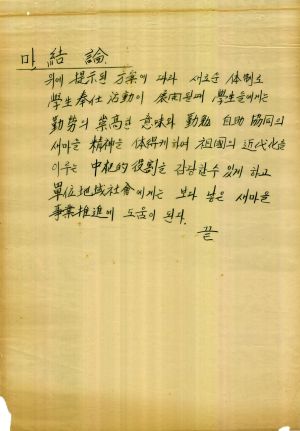 마 結論
위에 提示된 方案에 따라 새로운 体制로
學生奉仕活動이 展開될때 學生들에게는
勤勞의 崇高한 意味와 勤勉 自助 協同의
새마을 精神을 体得케하여 祖國의 近代化를
이루는 中枢的役割을 감당할수 있게 하고
單位地域社會에게는 보다 낳은 새마을
事業推進에 도움이 된다.
끝